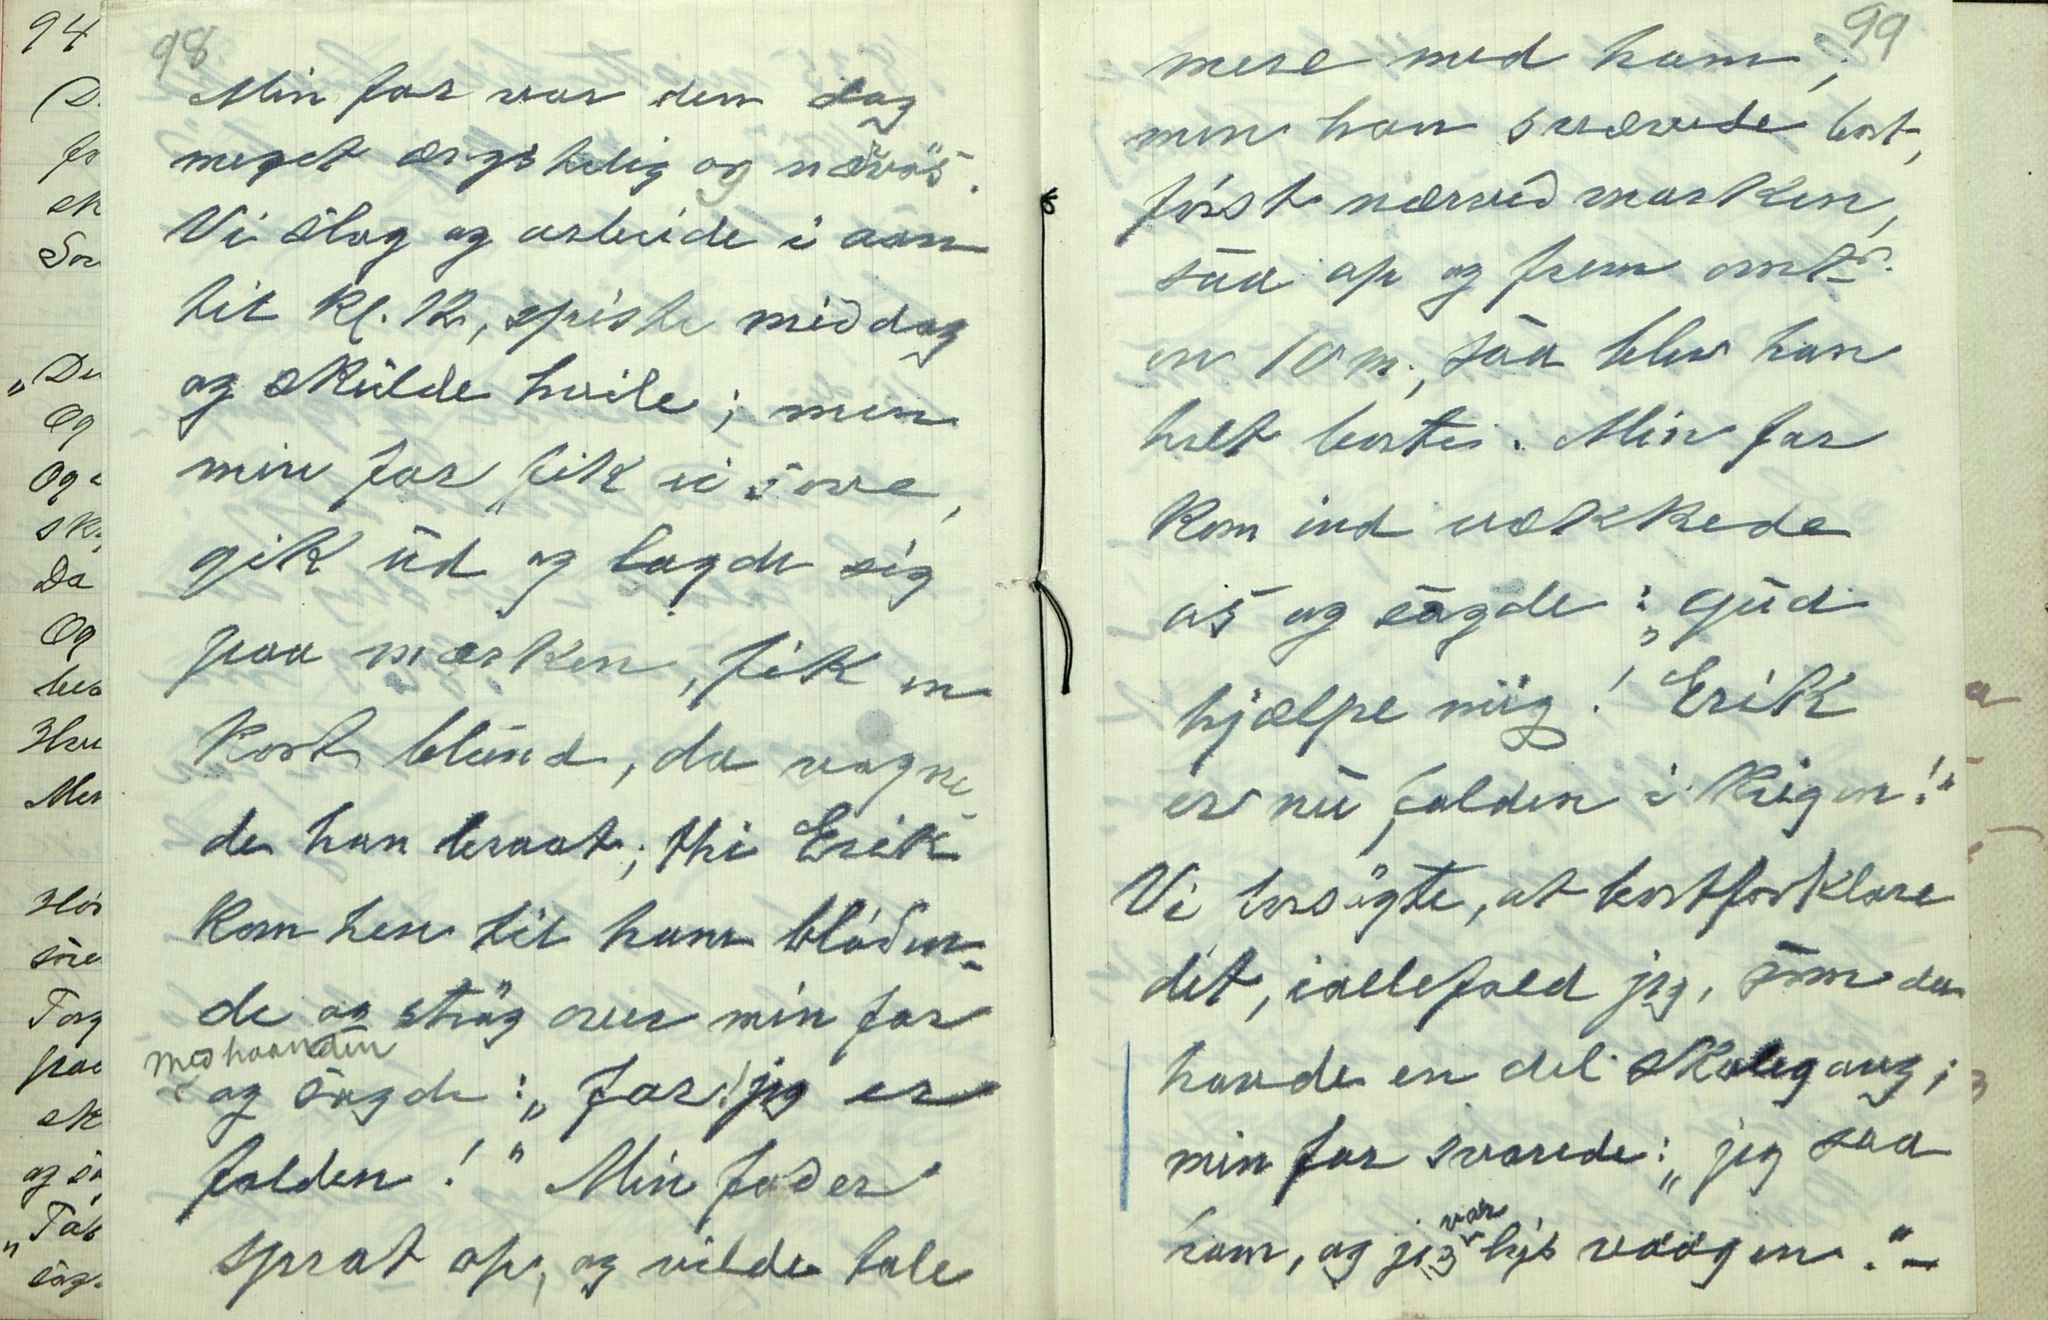 98
Min far var den dag
meget ængstelig og nærvös.
Vi slog og arbeide i aan
til kl. 12, spiste middag
og skulde hvile; men
min far fik ei sove,
gik ud og lagde sig
paa marken, fik en
kort blund, da vagne
de han braat; thi Erik
kom hen til ham blöden-
de og strög over min far
med haanden
og sagde: „far! jeg er
falden!" Min fader
sprat op, og vilde tale
99
mere med ham,
men han svævede bort,
först nærved marken,
saa op og frem omtr.
en 10 m., saa blev han
helt borte. Min far
kom ind vækkede
os og sagde: „Gud
hjælpe mig! Erik
er nu falden i krigen!"
Vi forsögte, at bortforklare
det, iallefald jeg, som da
havde en del skolegang;
min far svarede: „jeg saa
ham, og jeg var lys vaagen." –
94
Og
Da
Og